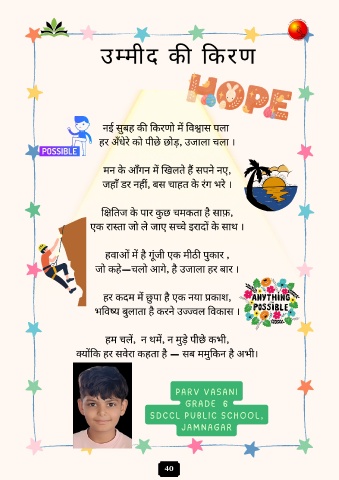 उम्मीद की किरण
HOPE
नई सुबह की किरणो में विश्वास पला
हर अँधेरे को पीछे छोड़, उजाला चला ।
POSSIBLE
मन के आँगन में खिलते हैं सपने नए,
जहाँ डर नहीं, बस चाहत के रंग भरे ।
क्षितिज के पार कुछ चमकता है साफ़,
एक रास्ता जो ले जाए सच्चे इरादों के साथ ।
हवाओं में है गूंजी एक मीठी पुकार ,
जो कहे—चलो आगे, है उजाला हर बार ।
हर कदम में छुपा है एक नया प्रकाश,
भविष्य बुलाता है करने उज्ज्वल विकास ।
ANYTHING
IS
POSSIBLE
हम चलें, न थमें, न मुड़े पीछे कभी,
क्योंकि हर सवेरा कहता है — सब ममुकिन है अभी।
PARV VASANI
GRADE 6
SDCCL PUBLIC SCHOOL,
JAMNAGAR
40